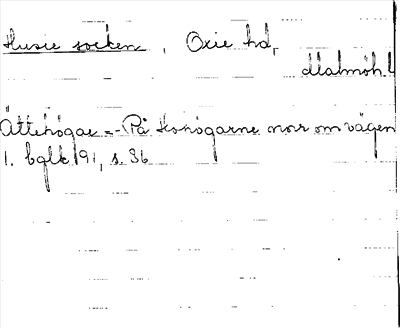 Husie socken, Oxie hd,
Malmöh. l.
Ättehögar = På Hohögarne norr om vägen
1. bglk 191, s. 36